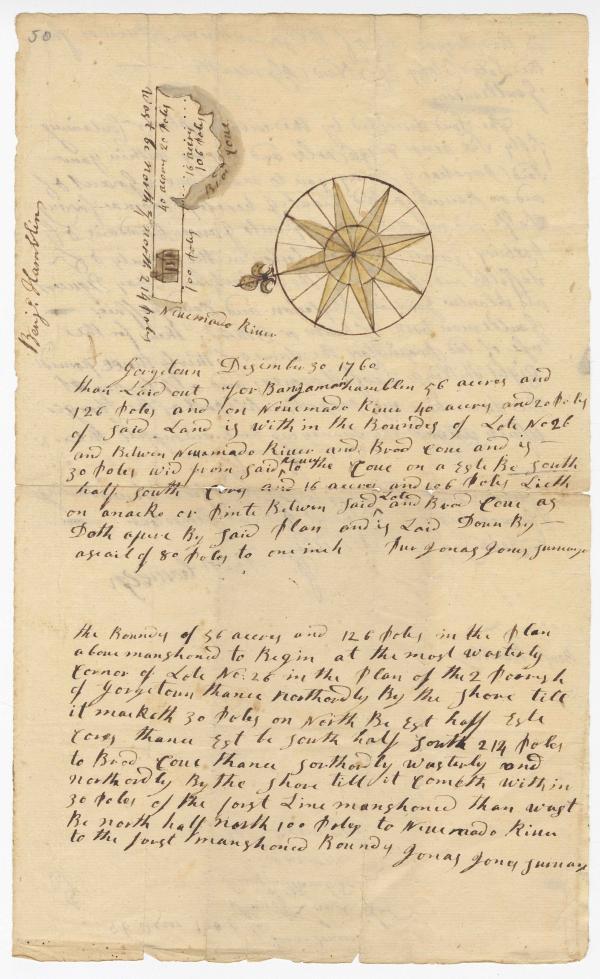 50
West be North ½ North 214 Poles
40 acors 20 Poles
16 acors
106 Poles
Brod Cove
100 Poles
Benj.ª Hamblin
Nenemado River
Gorgetown Desember 30 1760
than Laid out for Banjamon hamblen 56 acores and
126 Poles and on Nenemado River 40 acores and 20 Poles
of said Land is with in the Boundes of Lote No 26
and Betwen Nenemado River and Brod Cove and is
30 Poles wid from said River to the Cove on a Este Be South
half South Cors and 16 acores and 106 Poles Lieth
on anacke or Pinte Betwen said Lote and Brod Cove as
Doth apere By said Plan and is Laid Doun By
ascail of 80 Poles to one inch Pur Jonas Jones survayor
the Boundes of 56 acores and 126 Poles in the Plan
above manshoned to Begin at the most Wasterly
Cornor of Lote No. 26 in the Plan of the 2 Parrish
of Gorgetown thance northordly By the shore till
it maketh 30 Poles on North Be Est half Este
Cors thance Est be south half South 214 Poles
to Brod Cove thance southordly wasterly and
northordly By the shore till it cometh with in
30 Poles of the forst Line manshoned than wast
Be north half north 100 Poles to Nenemado River
to the forst manshoned Bounds Jonas Jones survayor